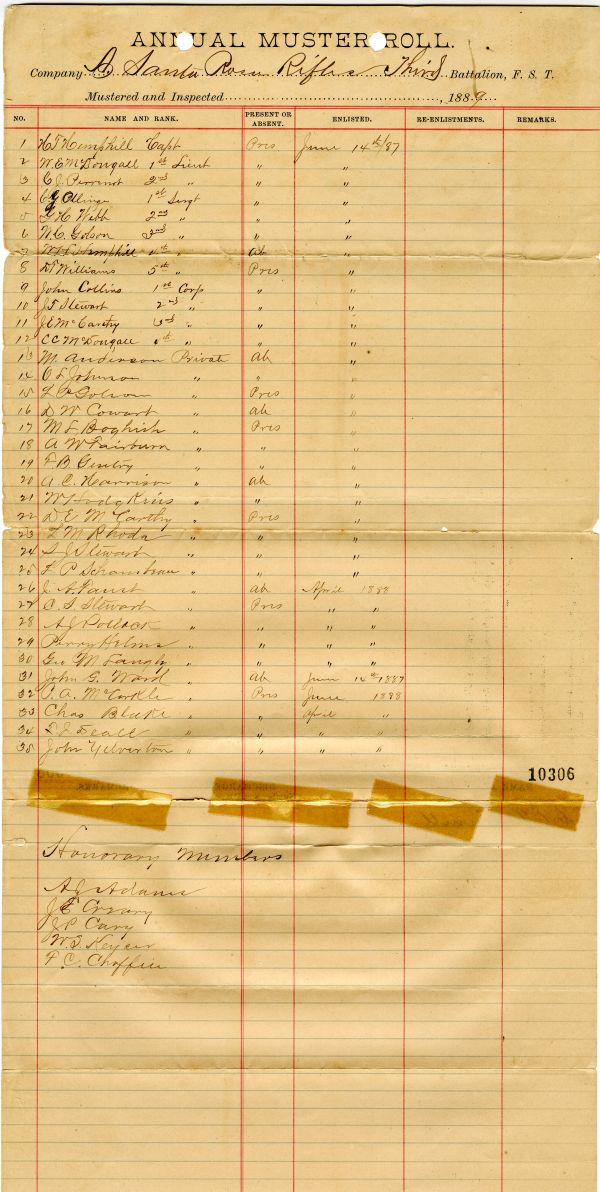 ANNUAL MUSTER ROLL.
Company A Santa Rosa Rifles Third Battalion, F. S. T.
Mustered and Inspected, 1889
NO. NAME AND RANK. PRESENT OR ABSENT. ENLISTED. RE-ENLISTMENTS. REMARKS.
1 H T Hemphill Capt Pres June 14th/87
2 W. E McDougall 1st Lieut " "
3 C J Perrenot 2nd " " "
4 Ollinger 1st Sergt " "
5 H Webb 2nd " " "
6 W. C. Golson 3rd " " "
7 Hemphill 4th " Ab
8 D T Williams 5th " Pres "
9 John Collins 1st Corp " "
10 J T Stewart 2nd " " "
11 J E McCarthy 3rd " " "
12 C C McDougall 4th " " "
13 M. Anderson Private Ab "
14 O L Johnson " " "
15 L P Golson " Pres "
16 D W Cowart " Ab "
17 M L " Pres "
18 A W Fairburn " " "
19 F B Gentry " " "
20 A. C. Harrison " Ab "
21 W Hodgkins " " "
22 D. E McCarthy " Pres "
23 L M Rhoda " " "
24 S J Stewart " " "
25 F P " " "
26 J. A. Faust " Ab April 1888
27 C. S. Stewart " Pres " "
28 A J Pollock " " " "
29 Perry Helms " " " "
30 Geo M Langly " " " "
31 John G Ward " Ab June 14th 1887
32 A. McCorkle " Pres June 1888
33 Chas Blake " " April "
34 Beall " " " "
35 John Yelverton " " " "
10306
Honorary Members
A J Adams
J E Creary
J P Cary
W. S. Keyser
F. C. Chaffin